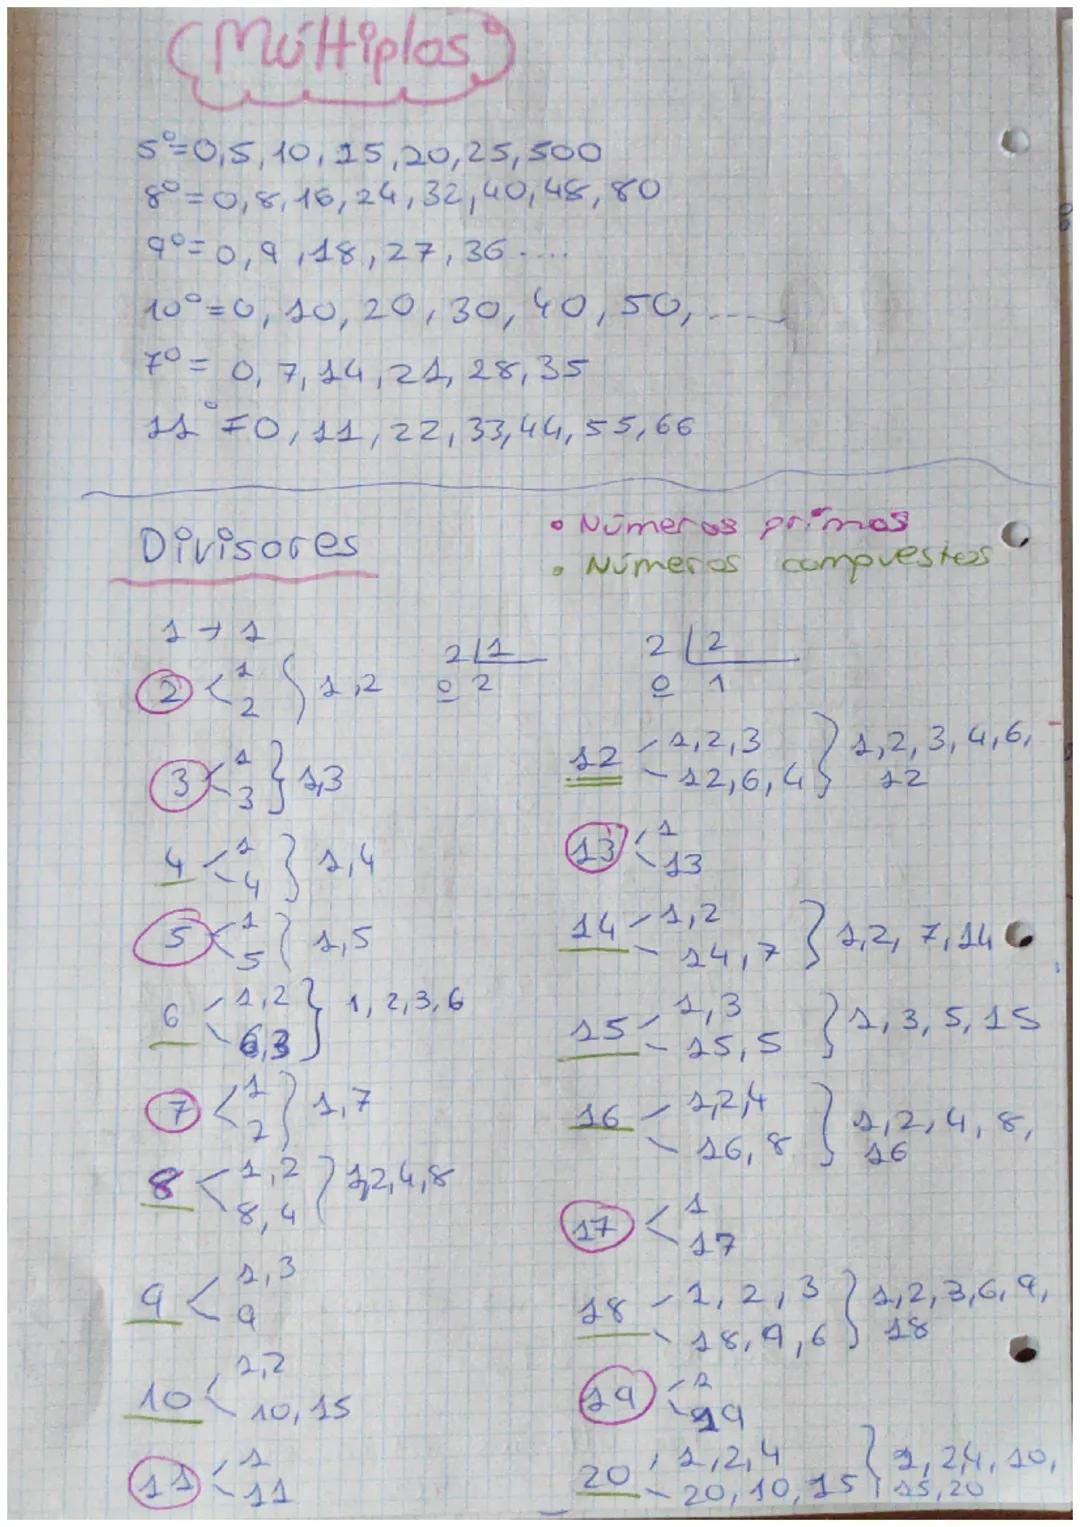 Múltiplos
5°=0,5,10,15,20,25,500
8°=0,8,16,24,32,40,48,80
9°=0,9,18,27,36....
10°=0,10,20,30,40,50,....
7°= 0,7,14,21,28,35
11°=0,11,22,33,44,55,66
Divisores
• Números primos
• Números compuestos
1→1
2 < 1
2 } 1,2
2 | 1
0 2
2 | 2
0 1
3 < 1
3 } 1,3
4 < 1
4 } 1,4
5 < 1
5 } 1,5
6 < 1,2
6,3 } 1,2,3,6
7 < 1
7 } 1,7
8 < 1,2
8,4 } 1,2,4,8
9 < 1,3
9
10 < 1,2
10,15
11 < 1
11
12 < 1,2,3
12,6,4 } 1,2,3,4,6,
12
13 < 1
13
14 < 1,2
14,7 } 1,2,7,14
15 < 1,3
15,5 } 1,3,5,15
16 < 1,2,4
16,8 } 1,2,4,8,
16
17 < 1
17
18 < 1,2,3
18,9,6 } 1,2,3,6,9,
18
19 < 1
19
20 < 1,2,4
20,10,15 } 1,2,4,10,
15,20